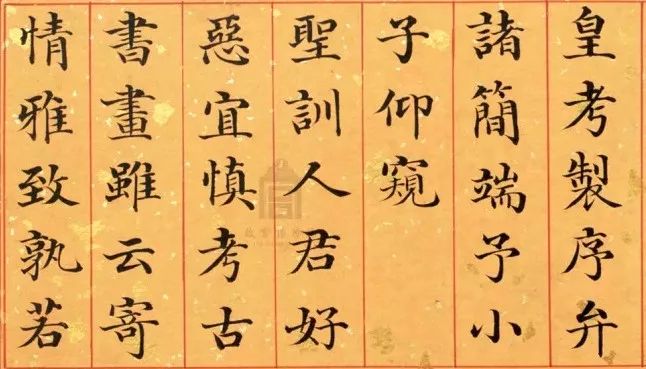 皇考製序弁
諸簡端予小
子仰窺
聖訓人君好
惡宜慎考古
書畫雖云寄
情雅致孰若